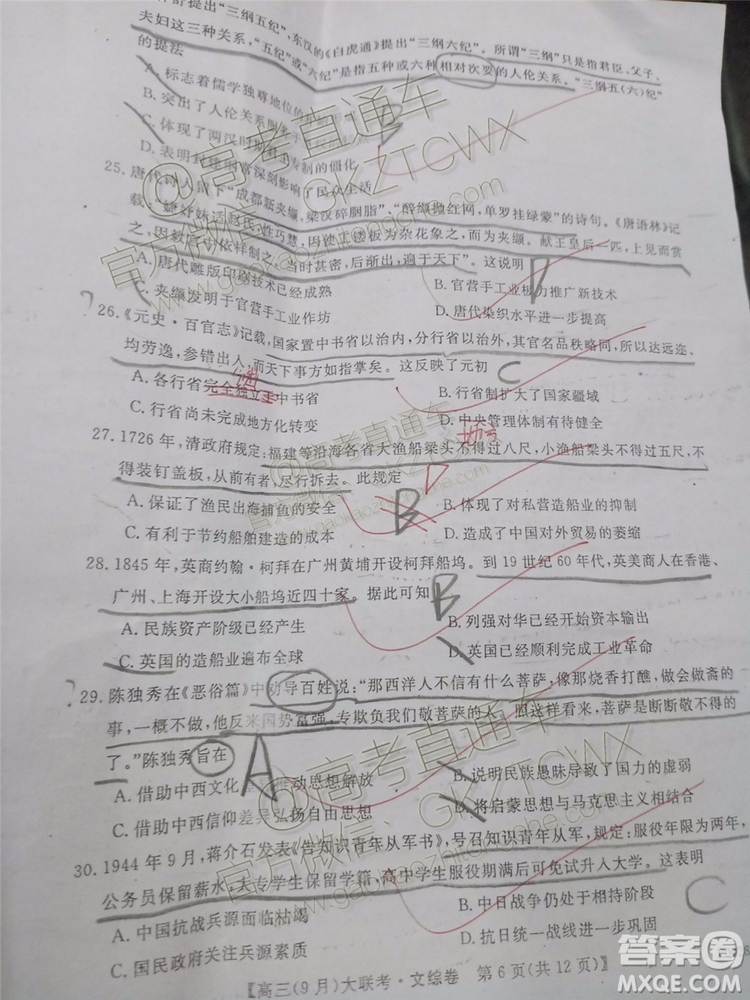 提出“三纲五纪”,东汉的《白虎通》提出“三纲六纪”。所谓“三纲”只是指君臣、父子、
夫妇这三种关系,“五纪”或“六纪”是指五种或六种相对次要的人伦关系。“三纲五(六)纪”
的提法
A. 标志着儒学独尊地位的
B. 突出了人伦关系
C. 体现了两汉时期 专制的强化
D. 表明 深刻影响了民众生活
B
25. 唐代诗人留下“成都新夹缬,梁汉碎胭脂”,“醉缬抛红网,单罗挂绿蒙”的诗句。《唐语林》记
载:婕妤妹适赵氏,性巧慧,因使工镂板为杂花象之,而为夹缬。献王皇后一匹,上见而赏
之,因敕宫中依样制之,当时甚密,后渐出,遍于天下”。这说明
A. 唐代雕版印刷技术已经成熟
B. 官营手工业极力推广新技术
C. 夹缬发明于官营手工业作坊
D. 唐代染织水平进一步提高
D
26.《元史·百官志》记载,国家置中书省以治内,分行省以治外,其官名品秩略同,所以达远迩、
均劳逸,参错出入,而天下事方如指掌矣。这反映了元初
A. 各行省完全独立于中书省
B. 行省制扩大了国家疆域
C. 行省尚未完成地方化转变
D. 中央管理体制有待健全
C
27. 1726 年,清政府规定:福建等沿海各省大渔船梁头不得过八尺,小渔船梁头不得过五尺,不
得装钉盖板,从前有者,尽行拆去。此规定
A. 保证了渔民出海捕鱼的安全
B. 体现了对私营造船业的抑制
C. 有利于节约船舶建造的成本
D. 造成了中国对外贸易的萎缩
B
28. 1845 年,英商约翰·柯拜在广州黄埔开设柯拜船坞。到 19 世纪 60 年代,英美商人在香港、
广州、上海开设大小船坞近四十家。据此可知
A. 民族资产阶级已经产生
B. 列强对华已经开始资本输出
C. 英国的造船业遍布全球
D. 英国已经顺利完成工业革命
B
29. 陈独秀在《恶俗篇》中劝导百姓说:“那西洋人不信有什么菩萨,像那烧香打醮,做会做斋的
事,一概不做,他反来国势富强,专欺负我们敬菩萨的人。照这样看来,菩萨是断断敬不得的
了。”陈独秀旨在
A. 借助中西文化 推动思想解放
B. 说明民族愚昧导致了国力的虚弱
C. 借助中西信仰差异弘扬自由思想
D. 将启蒙思想与马克思主义相结合
A
30. 1944 年 9 月,蒋介石发表《告知识青年从军书》,号召知识青年从军,规定:服役年限为两年,
公务员保留薪水,大专学生保留学籍,高中学生服役期满后可免试升入大学。这表明
A. 中国抗战兵源面临枯竭
B. 中日战争仍处于相持阶段
C. 国民政府关注兵源素质
D. 抗日民族统一战线进一步巩固
C
【高三(9 月)大联考·文综卷 第 6 页(共 12 页)】
@高考直通车
GKZTCWX
答案圈
MXQE.COM